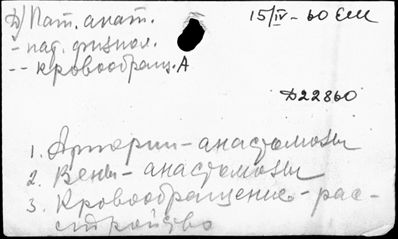 д) Пат. анат. 15/IV-60 ЕМ
- пат. физиол.
-- кровообращ. А
D22860
1. Артерии - анастомозы
2. Вены - анастомозы
3. Кровообращение - рас-
стройство